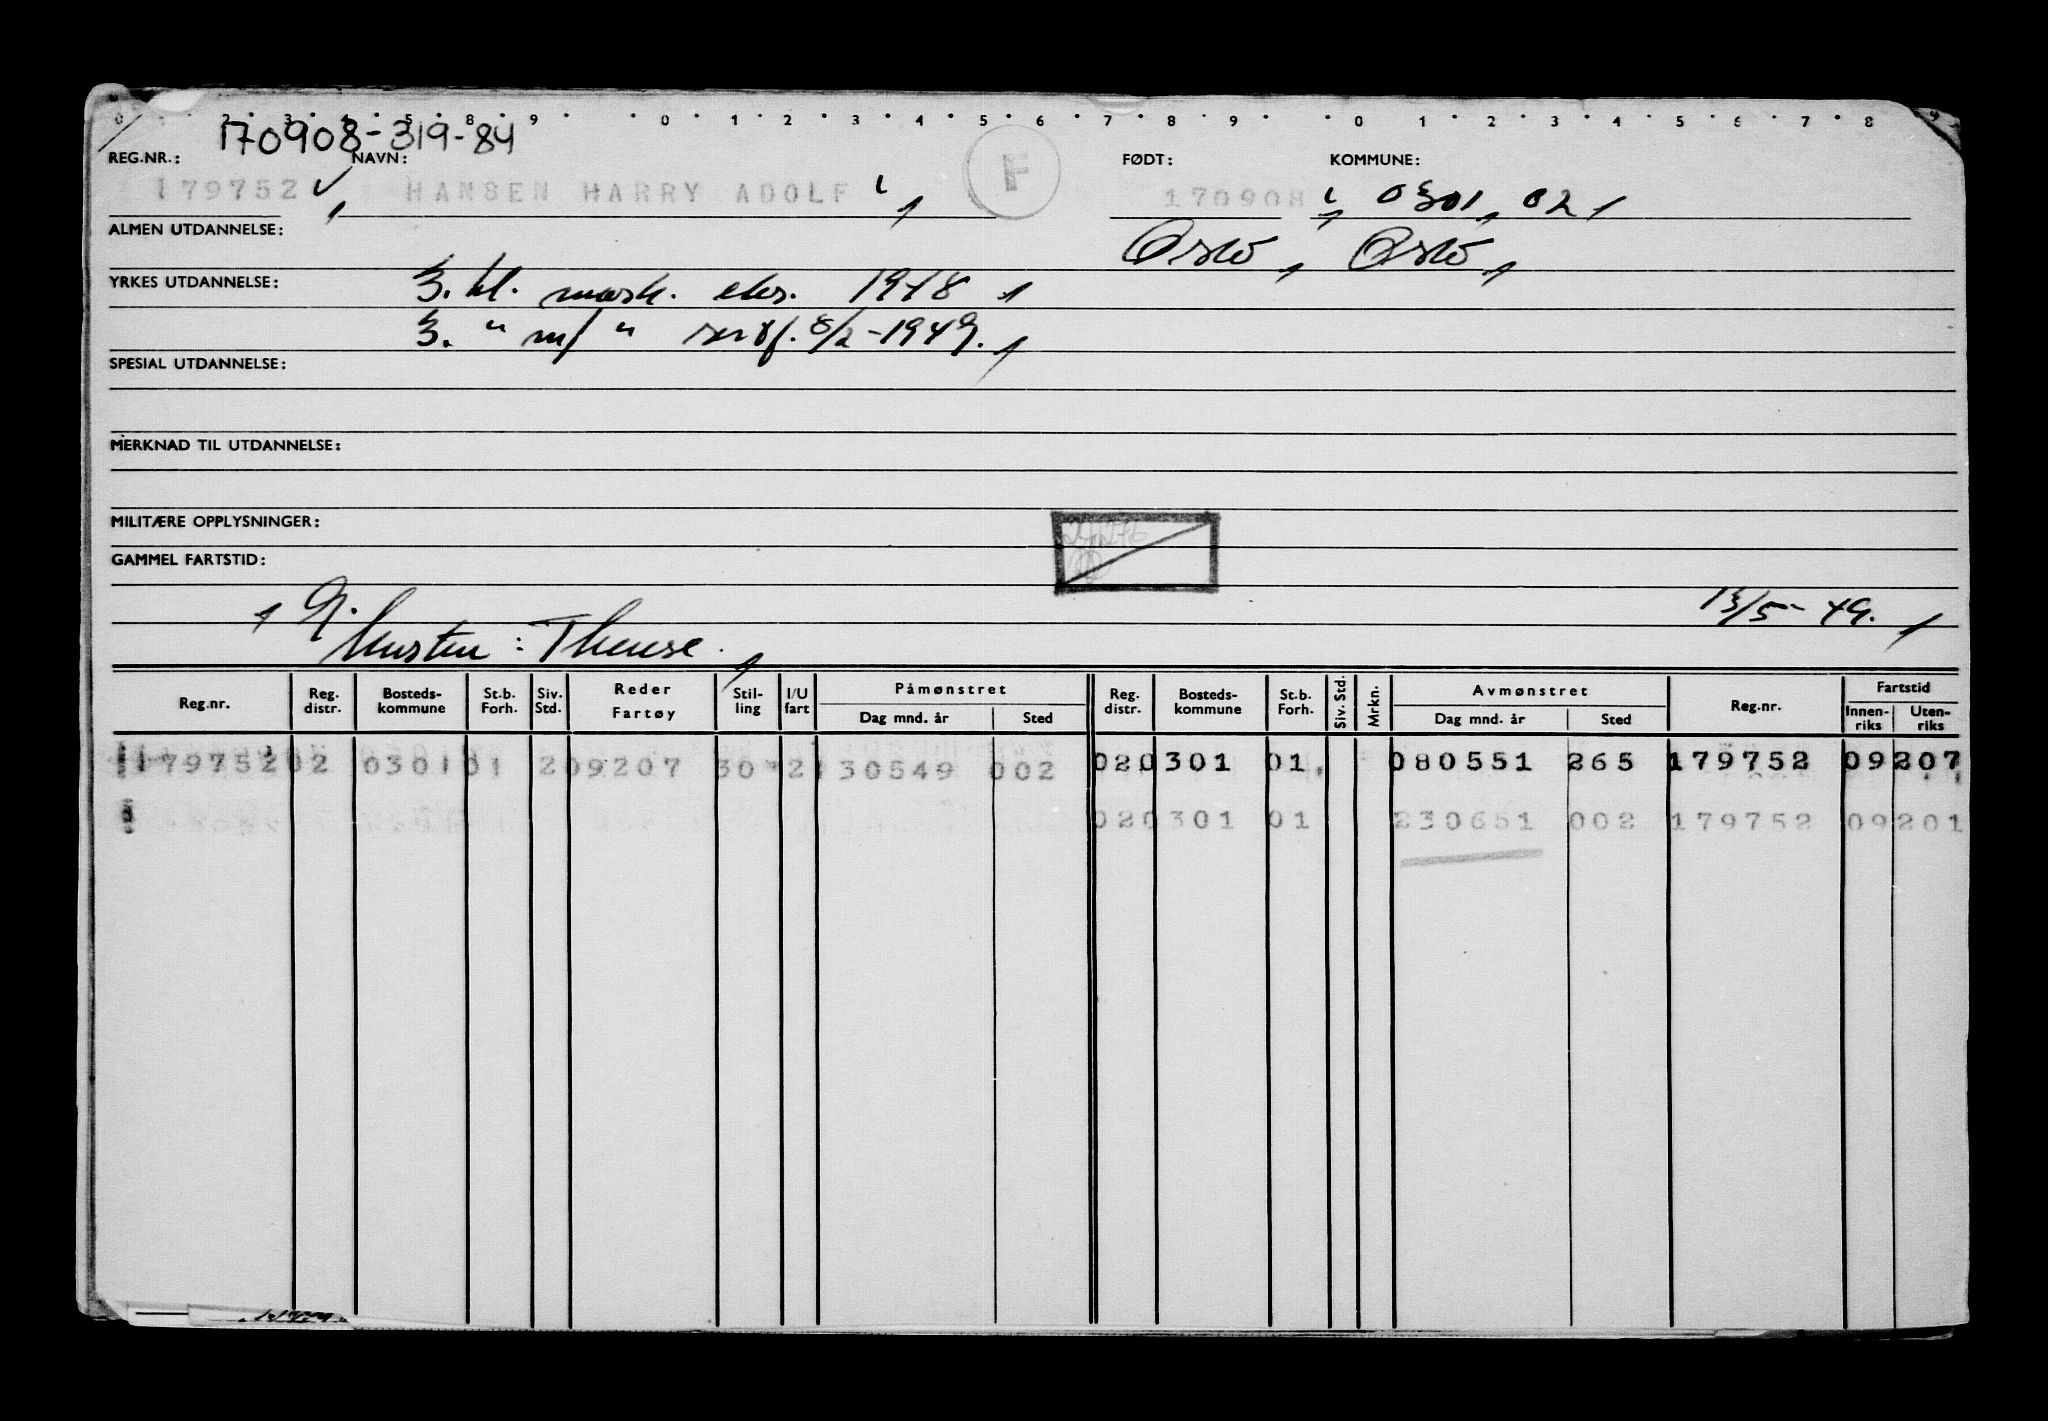 0 1 2 3 4 5 8 9 0 1 2 3 4 5 6 7 8 9 0 1 2 3 4 5 6 7 8
170908-319-84
REG.NR.: NAVN: FØDT: KOMMUNE:
179752 HANSEN HARRY ADOLF F 170908 0301, 02
ALMEN UTDANNELSE: Oslo, Oslo
YRKES UTDANNELSE: 3. kl. mask. eks. 1948
3. " m/ " sert. 8/2-1949.
SPESIAL UTDANNELSE:
MERKNAD TIL UTDANNELSE:
MILITÆRE OPPLYSNINGER:
GAMMEL FARTSTID:
13/5-49.
: Therese.
Reg.nr. Reg. distr. Bosteds-kommune St.b. Forh. Siv. Std. Reder Fartøy Stil-ling I/U fart Påmønstret Dag mnd. år Sted Reg. distr. Bosteds-kommune St.b. Forh. Siv. Std. Mrkn. Avmønstret Dag mnd. år Sted Reg.nr. Fartstid Innen-riks Uten-riks
179752 02 0301 01 2 09207 30 2 130549 002 02 0301 01 080551 265 179752 09207
02 0301 01 230651 002 179752 09201